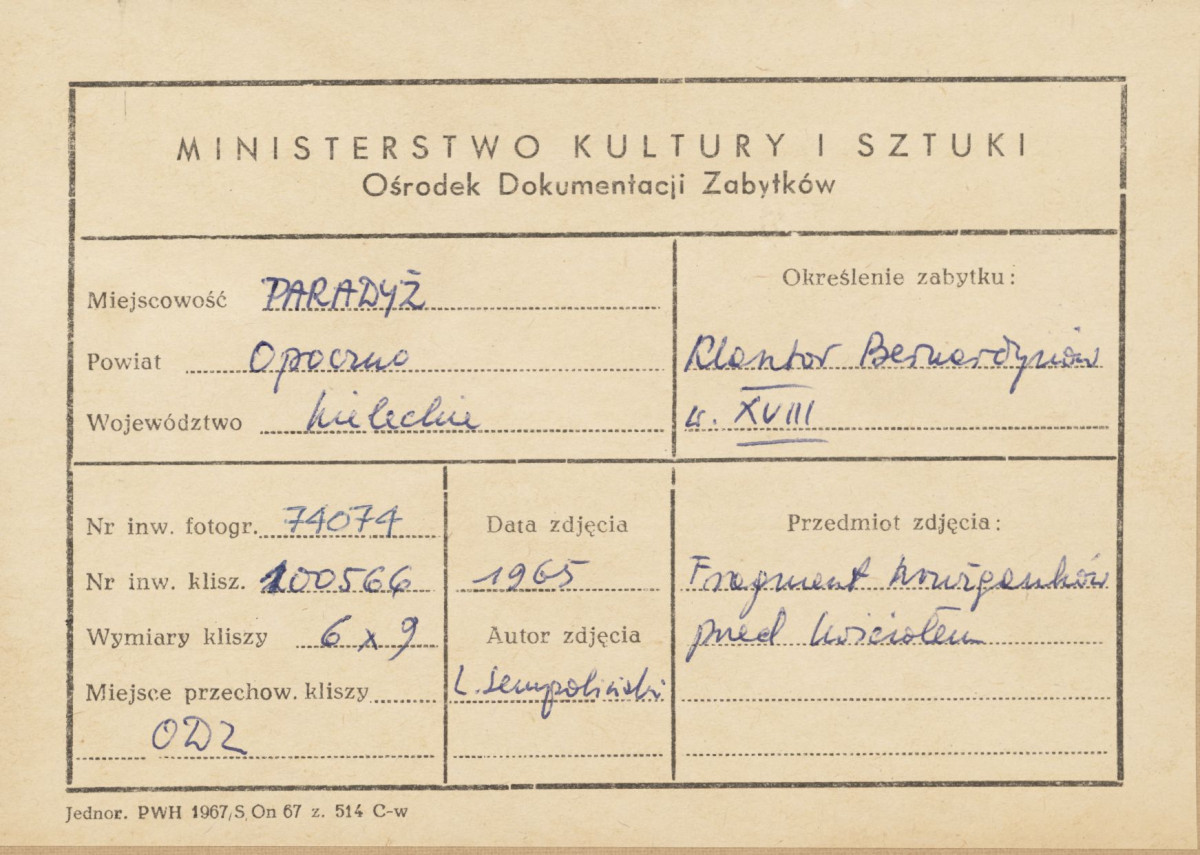 MINISTERSTWO KULTURY I SZTUKI
Ośrodek Dokumentacji Zabytków
Miejscowość PARADYŻ
Powiat Opoczno
Województwo kieleckie
Określenie zabytku:
Klasztor Bernardynów
w. XVIII
Nr inw. fotogr. 74074
Nr inw. klisz. 100566
Wymiary kliszy 6 x 9
Miejsce przechow. kliszy
ODZ
Data zdjęcia
1965
Autor zdjęcia
L. Sempoliński
Przedmiot zdjęcia:
Fragment krużganków
przed kościołem
Jednor. PWH 1967/S On 67 z. 514 C-w